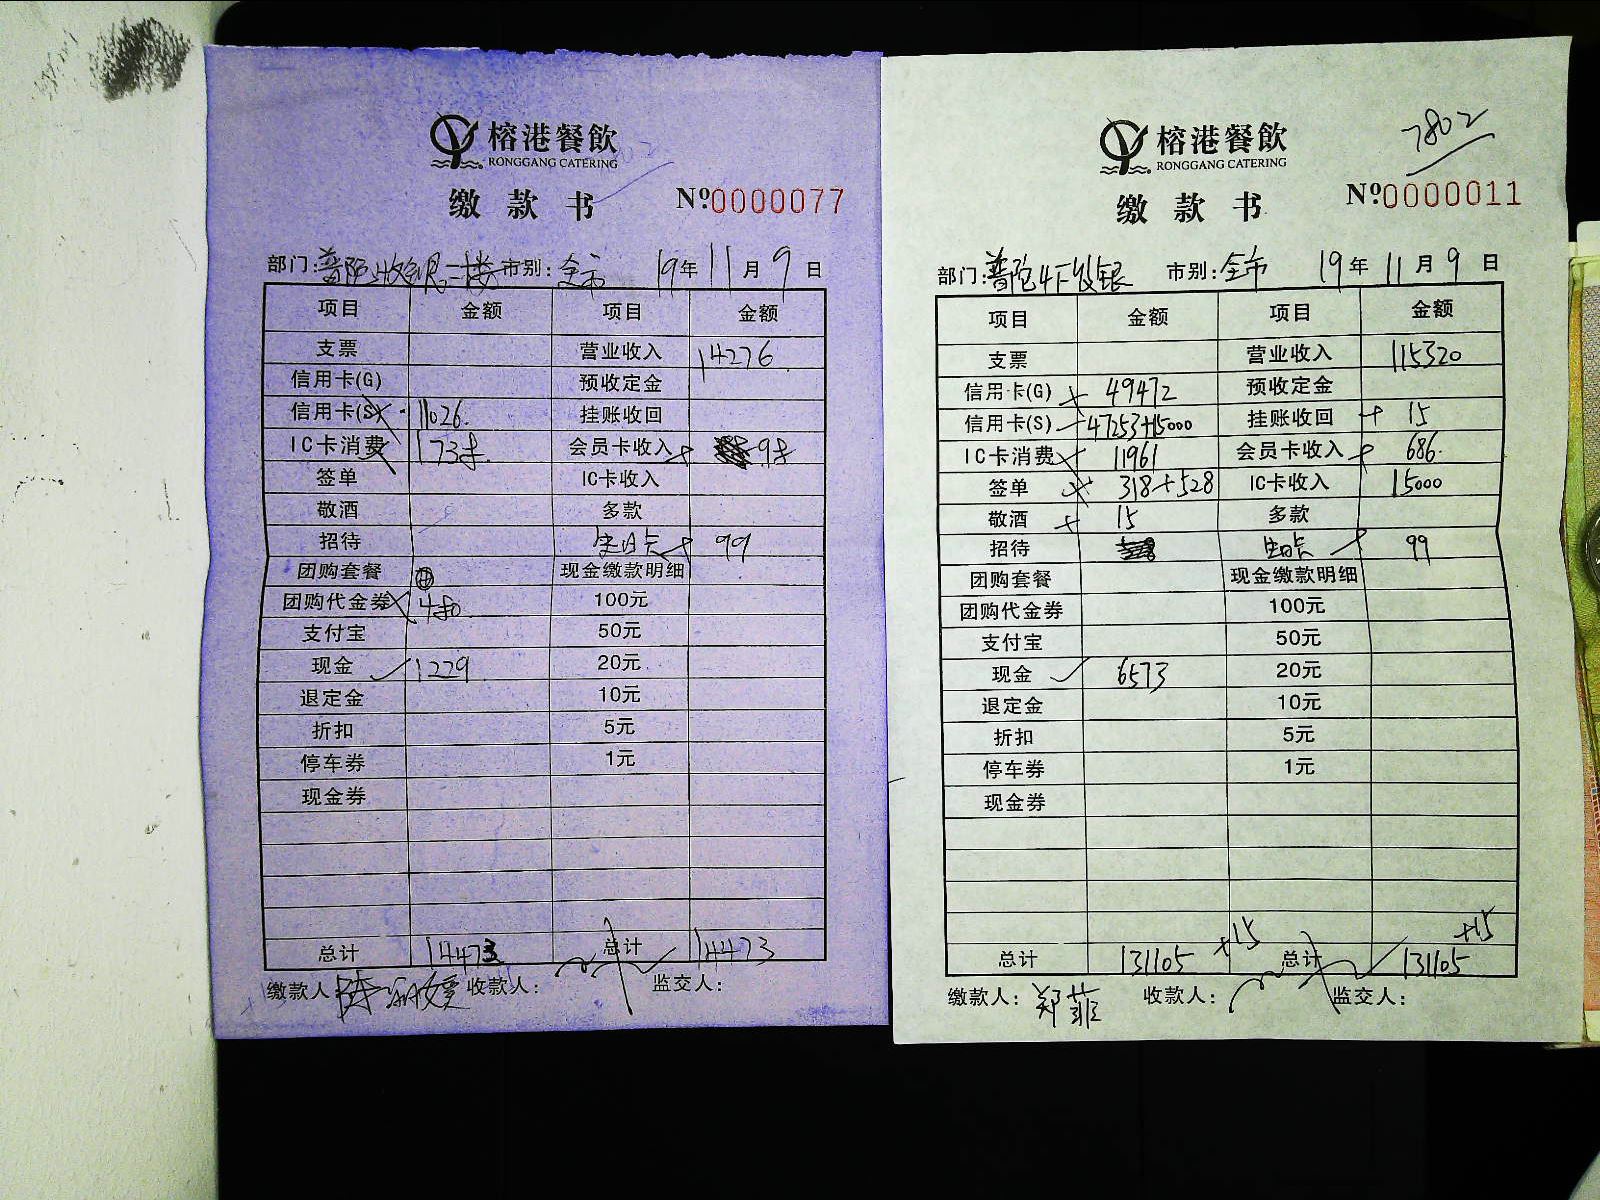 榕港餐飲
RONGGANG CATERING
缴款书
№0000077
部门: 普陀收银二楼 市别: 全市 19年11月9日
项目 金额 项目 金额
支票 营业收入 14276
信用卡(G) 预收定金
信用卡(S) 11026.
IC卡消费 会员卡收入
挂账收回
签单 IC卡收入
敬酒 多款
招待 生日卡 99
团购套餐 现金缴款明细
团购代金券 100元
支付宝 50元
现金 1229 20元
退定金 10元
折扣 5元
停车券 1元
现金券
总计 14473 总计 14473
缴款人: 收款人: 监交人:
7802
榕港餐飲
RONGGANG CATERING
缴款书
№0000011
部门: 普陀4F收银 市别: 全市 19年11月9日
项目 金额 项目 金额
支票 营业收入 115320
信用卡(G) 49472 预收定金
信用卡(S) 47253+15000 挂账收回 + 15
IC卡消费 11961 会员卡收入 686.
签单 318+528 IC卡收入 15000
敬酒 + 15 多款
招待 生日卡 99
团购套餐 现金缴款明细
团购代金券 100元
支付宝 50元
现金 6573 20元
退定金 10元
折扣 5元
停车券 1元
现金券
总计 131105 +15 总计 131105 +15
缴款人: 郑菲 收款人: 监交人: